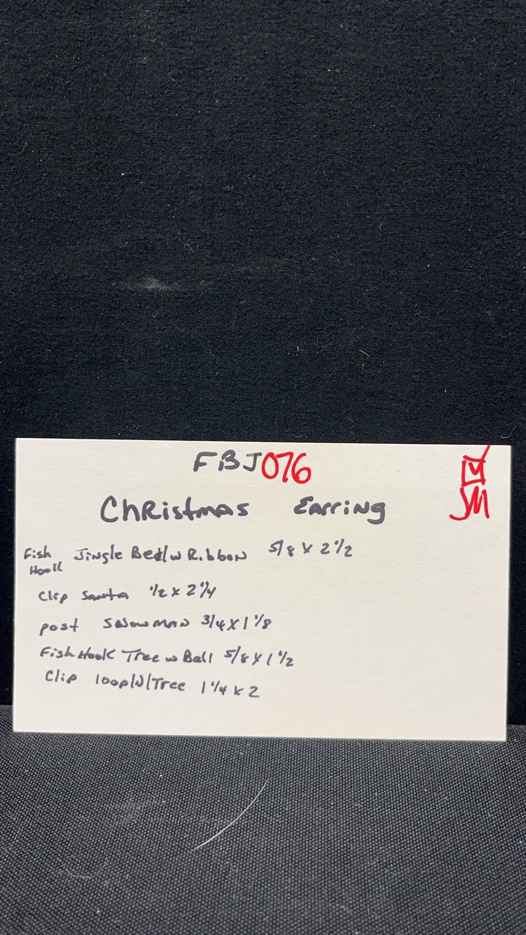 FBJ076
SM
Christmas Earring
Fish Hook Jingle Bell w Ribbon 5/8 x 2 1/2
Clip Santa 1/2 x 2 1/4
post Snowman 3/4 x 1 1/8
Fish Hook Tree w Ball 5/8 x 1 1/2
Clip loop w/Tree 1 1/4 x 2